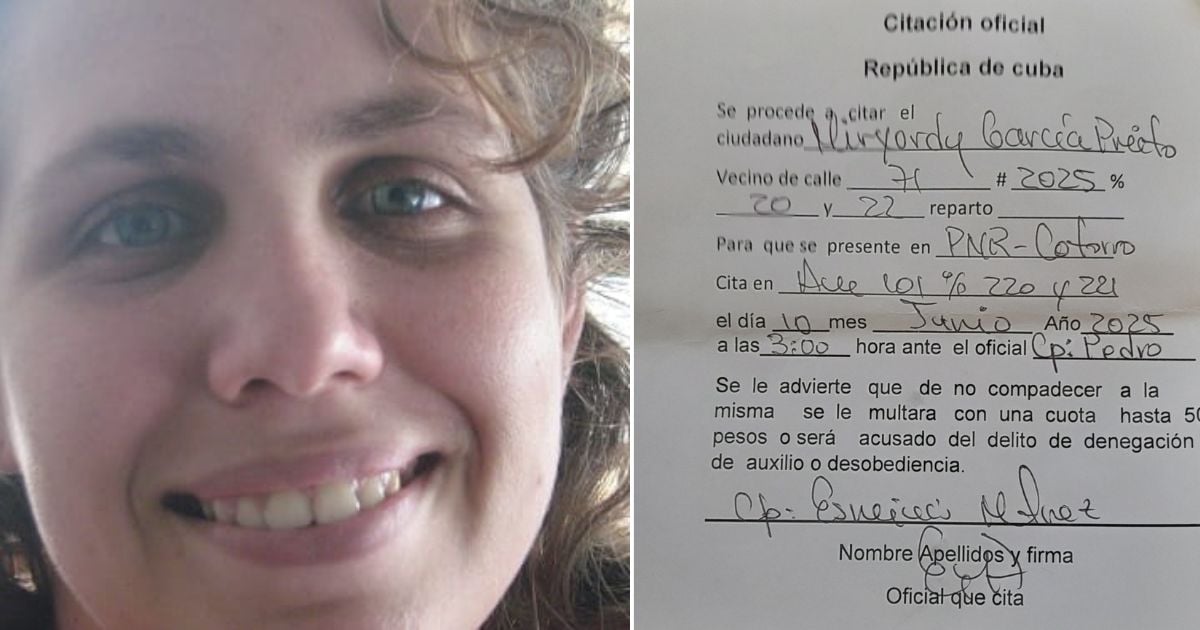 Citación oficial
República de cuba
Se procede a citar el
ciudadano Miryordy García Prieto
Vecino de calle 71 # 2025 %
20 y 22 reparto
Para que se presente en PNR-Cotorro
Cita en Ave 101 % 220 y 221
el día 10 mes Junio Año 2025
a las 3:00 hora ante el oficial Cp: Pedro
Se le advierte que de no compadecer a la
misma se le multara con una cuota hasta 50
pesos o será acusado del delito de denegación
de auxilio o desobediencia.
Cp:
Nombre Apellidos y firma
Oficial que cita